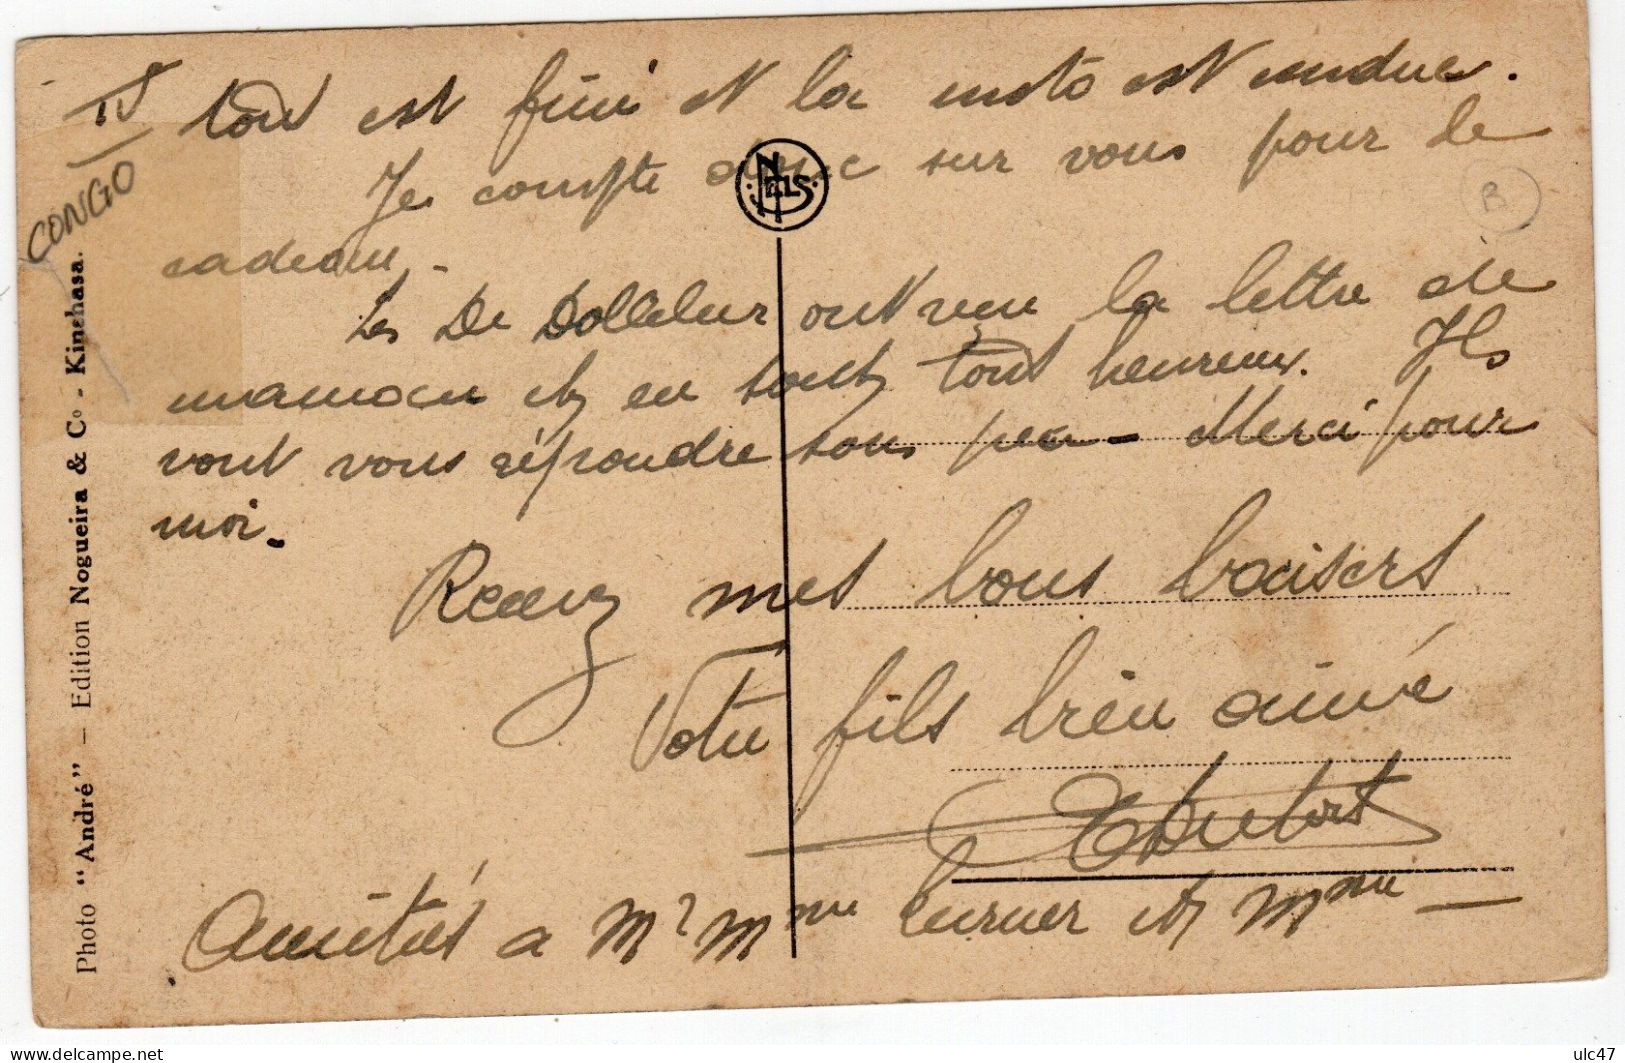 IV
CONGO
tout est fini et la moto est vendue.
Je compte donc sur vous pour le
cadeau.
NELS
B
Les De ont reçu la lettre de
maman et en sont tout heureux. Ils
vont vous répondre sous peu - Merci pour
moi.
Recevez mes bons baisers
Votre fils bien aimé
Amitiés a Mr Mme et Mme —
Photo “André” – Edition Nogueira & Co - Kinshasa.
ulc47